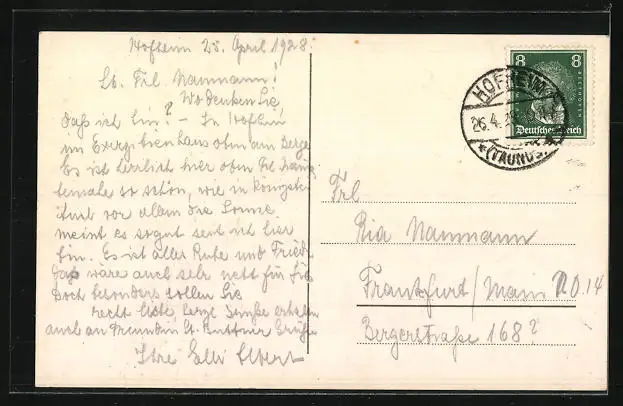 Hofheim 25. April 1928.
Lb. Frl. Naumann!
Wo denken Sie,
daß ich bin? – In Hofheim
im Exerzitienhaus oben am Berge
Es ist herrlich hier oben
so schön, wie in
vor allem die Sonne
meint es so gut seit ich hier
bin. Es ist alles Ruhe und Fried
das wäre auch sehr nett für Sie
Doch besonders sollen Sie
recht liebe, herzl. Grüße erhalten
auch an Freundin Grüße
Ihre Elli Elbert
8 8
BEETHOVEN
Deutsches Reich
HOFHEIM
26.4.28
*(TAUNUS)
Frl
Ria Naumann
Frankfurt/Main N.O.14
Bergerstraße 168?